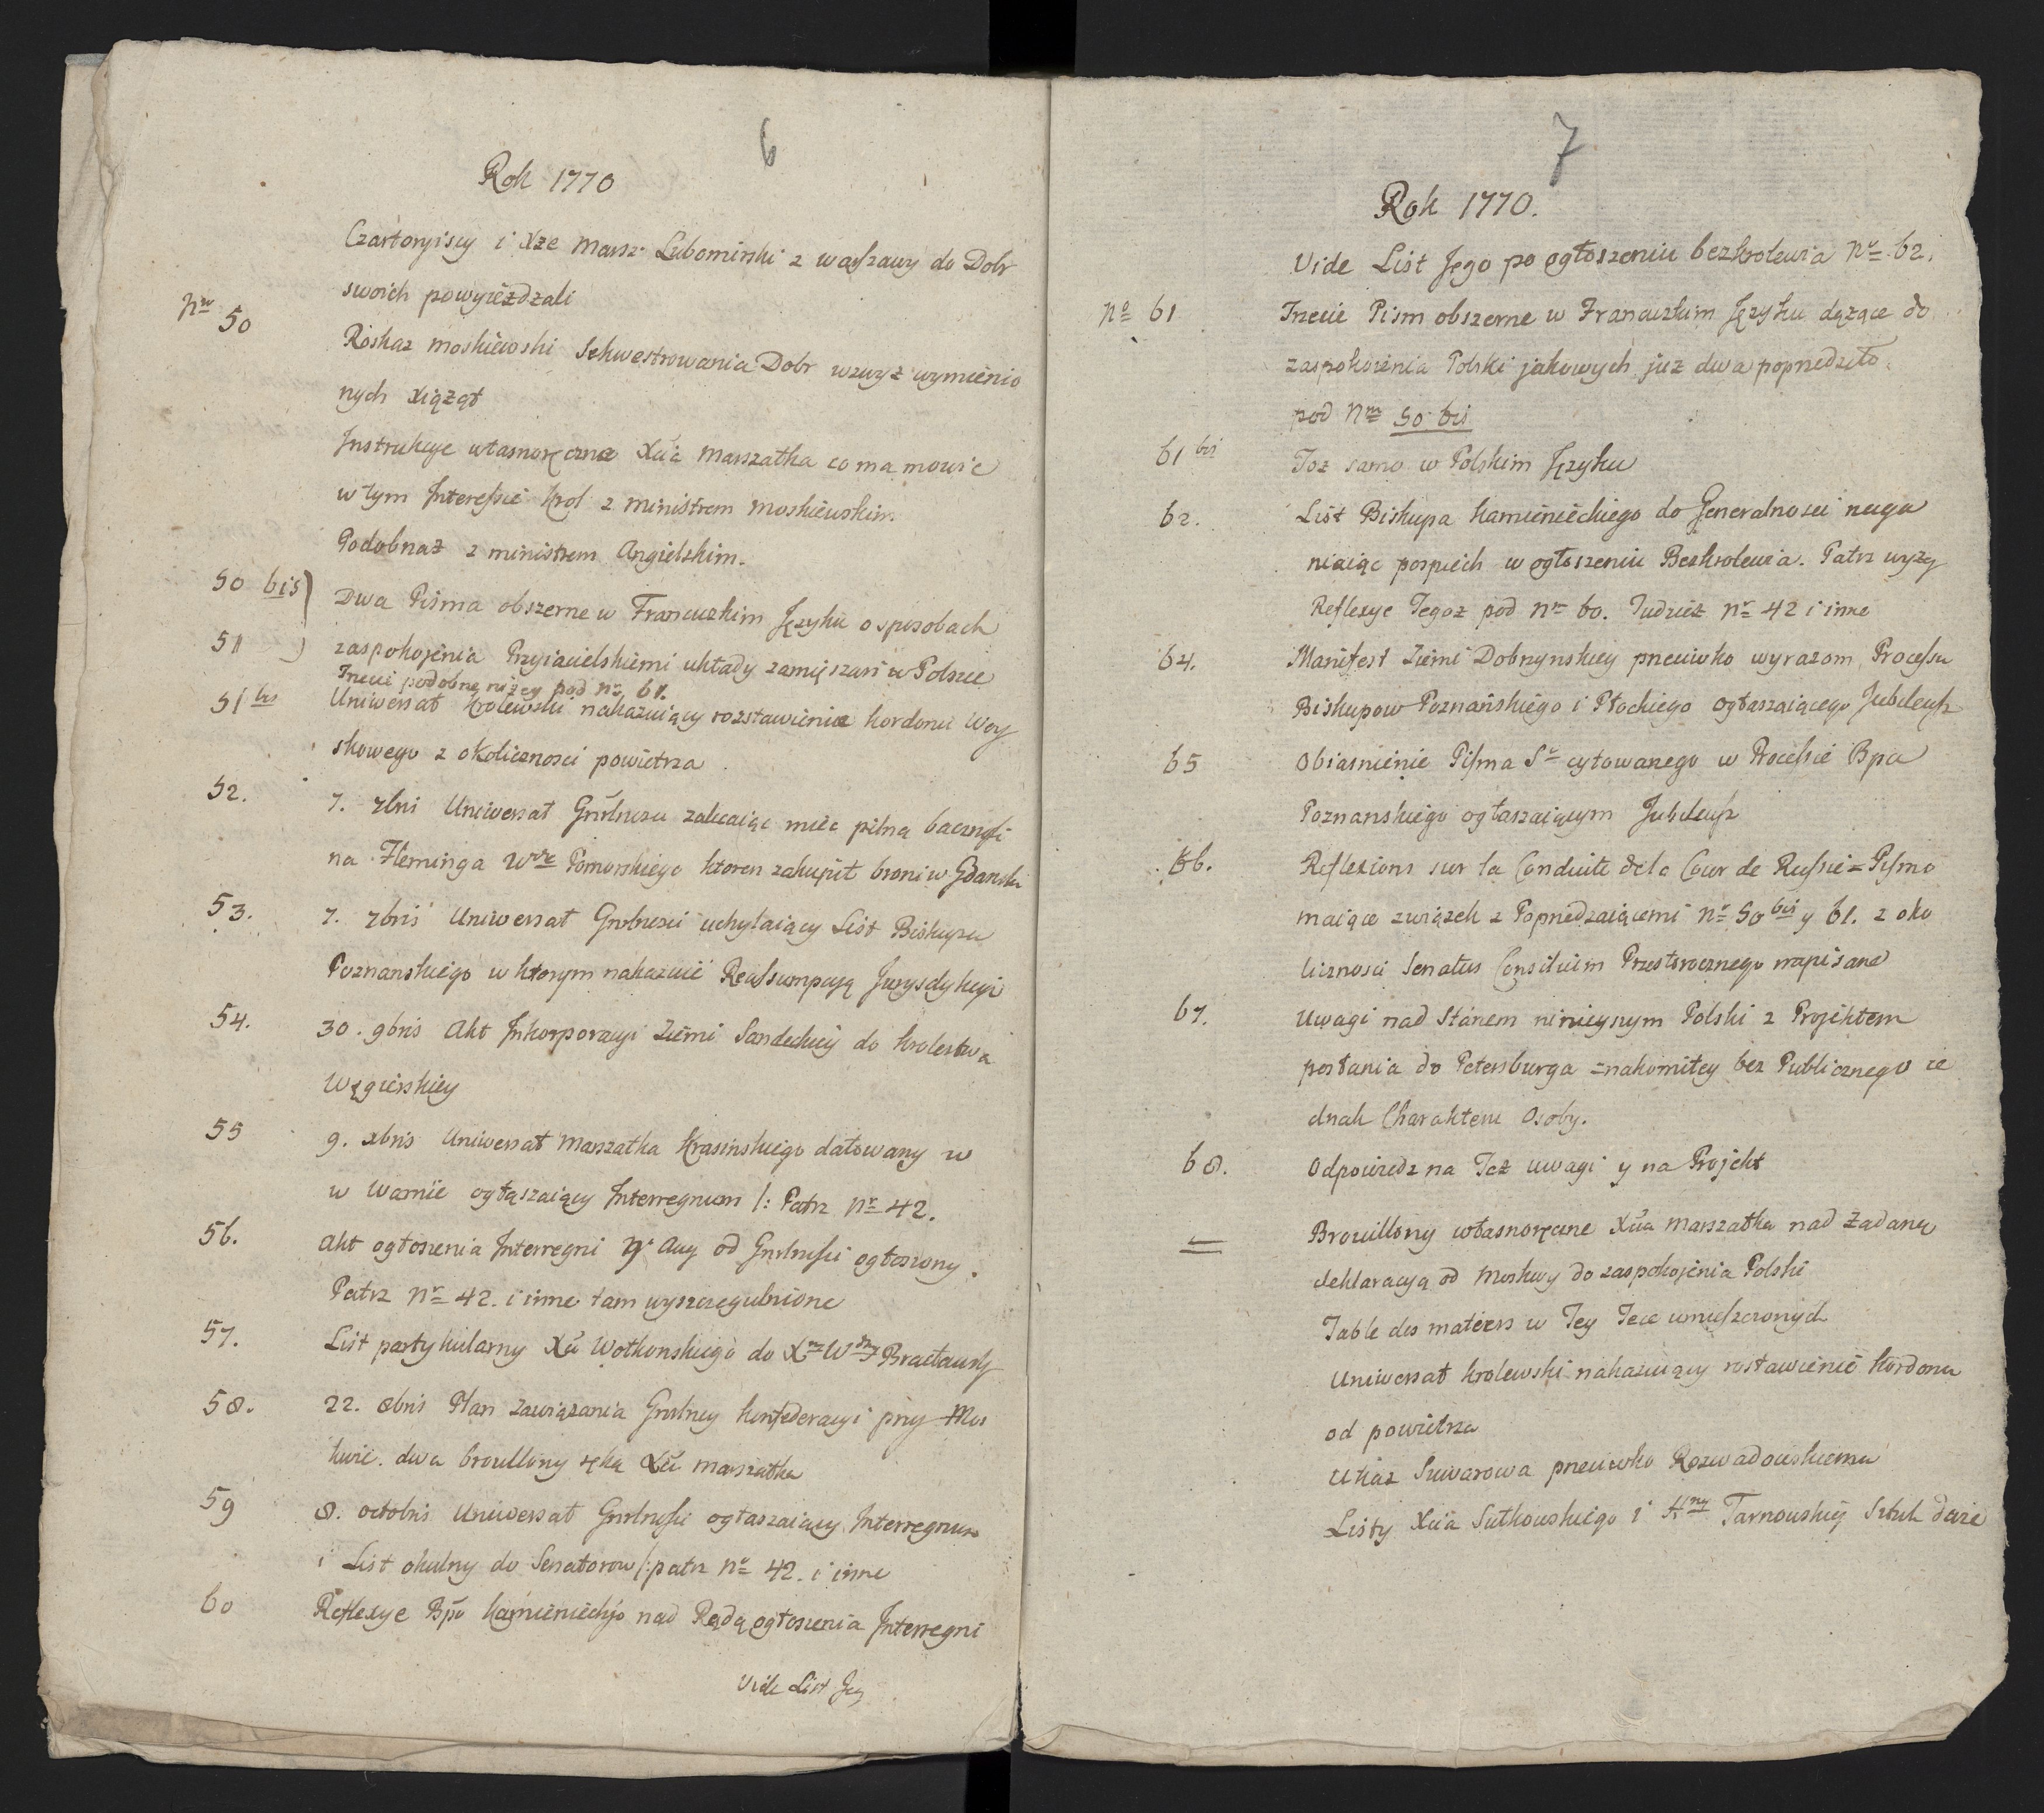 6
Rok 1770
Czartoryiscy i Xze Marsz: Lubomirski z warszawy do Dobr
swoich powyieżdzali
Nro 50
Roskaz moskiewski Sekwestrowania Dobr wzwyż wymienio
nych xiążąt
Instrukcye własnoręczne Xcia Marszałka co ma mowic
w tym Interessie Krol z ministrem moskiewskim.
Podobnaż z ministrem Angielskim.
50 bis)
Dwa Pisma obszerne w Francuzkim Języku o sposobach
51 )
zaspokojenia Przyiacielskiemi układy zamięszań w Polszce
Trzeci podobne niżey pod nr 61.
51 bis
Uniwersał Krolewski nakazuiący rozstawienie kordonu Woy
skowego z okolicznosci powietrza
52.
7. 7bri Uniwersał Gnrlnosci zalecaiąc mieć pilną bacznosć
na Fleminga Wdę Pomorskiego ktoren zakupił broni w Gdansku
53.
7. 7bris Uniwersał Gnrlnosci uchylaiący List Biskupa
Poznanskiego w ktorym nakazuie Reassumpcyą Jurysdykcyi
54.
30. 9bris Akt Inkorporacyi Ziemi Sandeckiey do krolestwa
Węgierskiey
55
9. xbris Uniwersał Marszałka Krasinskiego datowany w
w Warnie ogłaszaiący Interregnum /: Patrz Nr 42.
56.
Akt ogłoszenia Interregni 9. Aug od Gnrlnosci ogłoszony.
Patrz Nr 42. i inne tam wyszczegulnione
57.
List partykularny Xcia Wołkonskiego do Xny Wdny Bracławsky
58.
22. 8bris Plan zawiązania Gnrlney konfederacyi przy Mos
kwie. dwa broullony ręką Xcia Marszałka
59
8. octobris Uniwersał Gnrlnosci ogłaszaiący Interregnum
i List okulny do Senatorow /: patrz Nr 42. i inne
60
Reflexye Bpa Kamienieckigo nad Radą ogłoszenia Interregni
Vide List Jeg
7
Rok 1770.
Vide List Jego po ogłoszeniu bezkrolewia Nr 62.
No 61
Trzecie Pism obszerne w Francuzkim Języku dążące do
zaspokoienia Polski jakowych już dwa poprzedziło
pod Nrm 50 bis
61 bis
Toż samo w Polskim Języku
62.
List Biskupa Kamienieckiego do Generalnosci naga
niaiąc pospiech w ogłoszeniu Bezkrolewia. Patrz wyżey
Reflexye Tegoż pod Nr 60. Tudzież Nr 42 i inne
64.
Manifest Ziemi Dobrzynskiey przeciwko wyrazom Processu
Biskupow Poznańskiego i Płockiego ogłaszaiącego Jubileusz
65
Obiasnienie Pisma So cytowanego w Processie Bpa
Poznanskiego ogłaszaiącym Jubileusz
66.
Reflexions sur la Conduite de la Cour de Russie = Pismo
maiące związek z Poprzedzaiącemi Nr 50 bis y 61. z oko
licznosci Senatus Consilium Przeszłorocznego napisane
67.
Uwagi nad Stanem ninieyszym Polski z Projektem
posłania do Petersburga znakomitey bez Publicznego ie
dnak Charakteru Osoby.
68.
Odpowiedz na Też uwagi y na Projekt
=
Brouillony własnoręczne Xcia Marszałka nad żądaną
deklaracyą od Moskwy do zaspokojenia Polski
Table des matiers w Tey Tece umieszczonych
Uniwersał krolewski nakazuiący rostawienie kordonu
od powietrza
Ukaz Suwarowa przeciwko Rozwadowskiemu
Listy Xcia Sułkowskiego i Hny Tarnowskiey Sztuk dwie